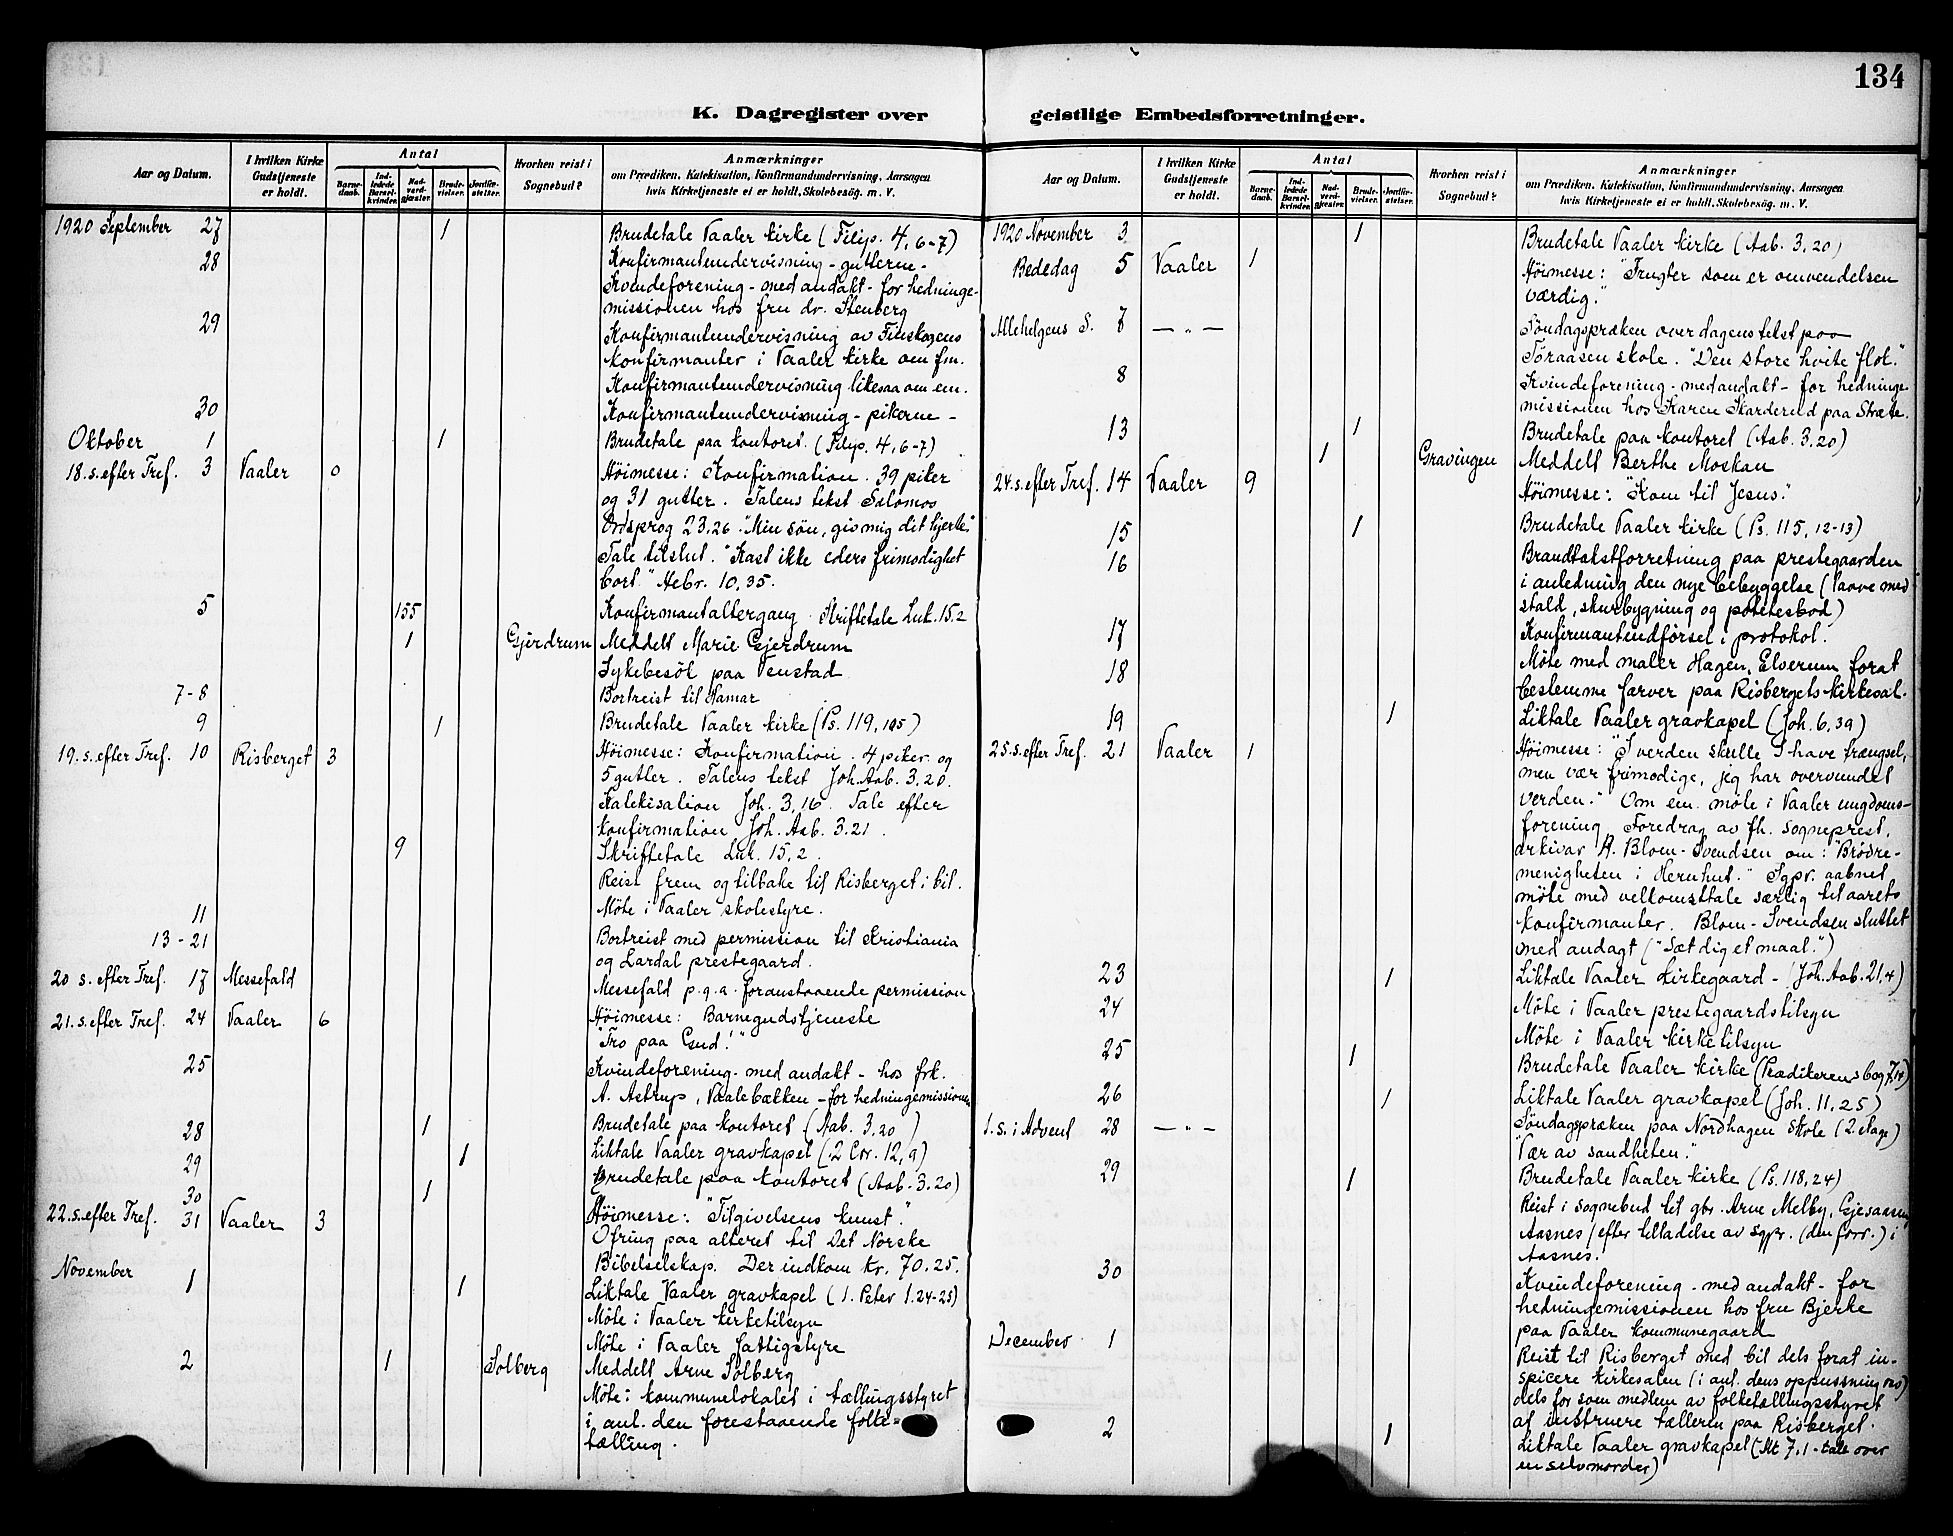 134
K. Dagregister over geistlige Embedsforretninger.
Aar og Datum.
I hvilken Kirke Gudstjeneste er holdt.
Antal
Barnedaab.
Indledede Barselkvinder.
Nadverdgjæster.
Brudevielser.
Jordfæstelser.
Hvorhen reist i Sognebud?
Anmærkninger
om Prædiken, Katekisation, Konfirmandundervisning, Aarsagen
hvis Kirketjeneste ei er holdt, Skolebesög. m. V.
1920 September 27 1 Brudetale Vaaler kirke (Filip. 4, 6-7)
28 Konfirmantundervisning - guttene -
Kvindeforening - med andakt - for hedninge-
missionen hos fru dr. Stenberg
29 Konfirmantundervisning av Finskogens
konfirmanter i Vaaler kirke om fm.
Konfirmantundervisning likesaa om em.
30 Konfirmantundervisning - pikerne -
Oktober 1 1 Brudetale paa kontoret (Filip. 4, 6-7)
18. s. efter Tref. 3 Vaaler 0 Höimesse: Konfirmation. 39 piker
og 31 gutter. Talens tekst Salomos
Ordsprog 23,26 "Min sön, giv mig dit hjerte."
Tale tilslut. "Kast ikke eders frimodighet
bort." Hebr. 10,35.
5 155 Konfirmantaltergang. Skriftetale Luk. 15.2
1 Gjerdrum Meddelt Marie Gjerdrum
Sykebesök paa Venstad
7-8 Bortreist til Hamar
9 1 Brudetale Vaaler kirke (Ps. 119,105)
19. s. efter Tref. 10 Risberget 3 Höimesse: Konfirmation. 4 piker og
5 gutter. Talens tekst Joh. Aab. 3.20.
Katekisation Joh. 3,16. Tale efter
konfirmation Joh. Aab. 3.21.
9 Skriftetale Luk. 15,2.
Reist frem og tilbake til Risberget i bil.
11 Möte i Vaaler skolestyre.
13-21 Bortreist med permission til Kristiania
og Lardal prestegaard.
20 s. efter Tref. 17 Messefald Messefald p.g.a. foranstaaende permission
21. s. efter Tref. 24 Vaaler 6 Höimesse: Barnegudstjeneste
"Tro paa Gud!"
25 Kvindeforening - med andakt - hos frk.
A. Astrup, Vaalebækken - for hedningemissionen
28 1 Brudetale paa kontoret (Aab. 3,20)
29 1 Liktale Vaaler gravkapel (2 Cor. 12,9)
30 1 Brudetale paa kontoret (Aab. 3.20)
22. s. efter Tref. 31 Vaaler 3 Höimesse: "Tilgivelsens kunst."
Ofring paa alteret til Det Norske
Bibelselskap. Der indkom kr. 70.25.
November 1 1 Liktale Vaaler gravkapel (1. Peter 1.24-25)
Möte i Vaaler kirketilsyn
Möte i Vaaler fattigstyre
2 1 Solberg Meddelt Arne Solberg
Möte i kommunelokalet i tællingsstyret
i anl. den forestaaende folke-
tælling.
Aar og Datum.
I hvilken Kirke Gudstjeneste er holdt.
Antal
Barnedaab.
Indledede Barselkvinder.
Nadverdgjæster.
Brudevielser.
Jordfæstelser.
Hvorhen reist i Sognebud?
Anmærkninger
om Prædiken, Katekisation, Konfirmandundervisning, Aarsagen
hvis Kirketjeneste ei er holdt, Skolebesög. m. V.
1920 November 3 1 Brudetale Vaaler kirke (Aab. 3,20)
Bededag 5 Vaaler 1 Höimesse: "Frugter som er omvendelsen
værdig."
Allehelgens S. 7 — " — Söndagspræken over dagens tekst paa
Toraasen skole. "Den store hvite flok."
8 Kvindeforening - med andakt - for hedninge-
missionen hos Karen Skarderud paa Stræte.
13 1 Brudetale paa kontoret (Aab. 3.20)
1 Gravingen Meddelt Berthe Moskau
24. s. efter Tref. 14 Vaaler 9 Höimesse: "Kom til Jesus."
15 1 Brudetale Vaaler kirke (Ps. 115, 12-13)
16 Brandtakstforretning paa prestegaarden
i anledning den nye bebyggelse (laave med
stald, skurbygning og potetesbod)
17 Konfirmantindförsel i protokol.
18 Möte med maler Hagen, Elverum forat
bestemme farver paa Risbergets kirkesal.
19 1 Liktale Vaaler gravkapel (Joh. 6,39)
25. s. efter Tref. 21 Vaaler 1 Höimesse: "I verden skulle I have trængsel,
men vær frimodige, jeg har overvundet
verden." Om em. möte i Vaaler ungdoms-
forening. Foredrag av fh. sogneprest,
arkivar A. Blom-Svendsen om: "Brödre-
menigheten i Hernhut." Sgpr. aabnet
möte med velkomsttale særlig til aarets
konfirmanter. Blom-Svendsen sluttet
med andagt ("Sæt dig et maal.")
23 1 Liktale Vaaler kirkegaard - (Joh. Aab. 21,4)
24 Möte i Vaaler prestegaardstilsyn
Möte i Vaaler kirketilsyn
25 1 Brudetale Vaaler kirke (Prædikerens bog 7,14)
26 1 Liktale Vaaler gravkapel (Joh. 11,25)
1. s. i Advent 28 — " — Söndagspræken paa Nordhagen skole (2. etage)
"Vær av sandheten."
29 1 Brudetale Vaaler kirke (Ps. 118,24)
Reist i sognebud til gbr. Arne Melby, Gjesaasen
Aasnes (efter tilladelse av sgpr. (den forr.) i
Aasnes.
30 Kvindeforening - med andakt - for
hedningemissionen hos fru Bjerke
paa Vaaler kommunegaard
December 1 Reist til Risberget med bil dels forat in-
spicere kirkesalen (i anl. dens oppussning
dels for som medlem av folketællingsstyret
at instruere tælleren paa Risberget.
2 1 Liktale Vaaler gravkapel (Mt 7.1 - tale over
en selvmorder)